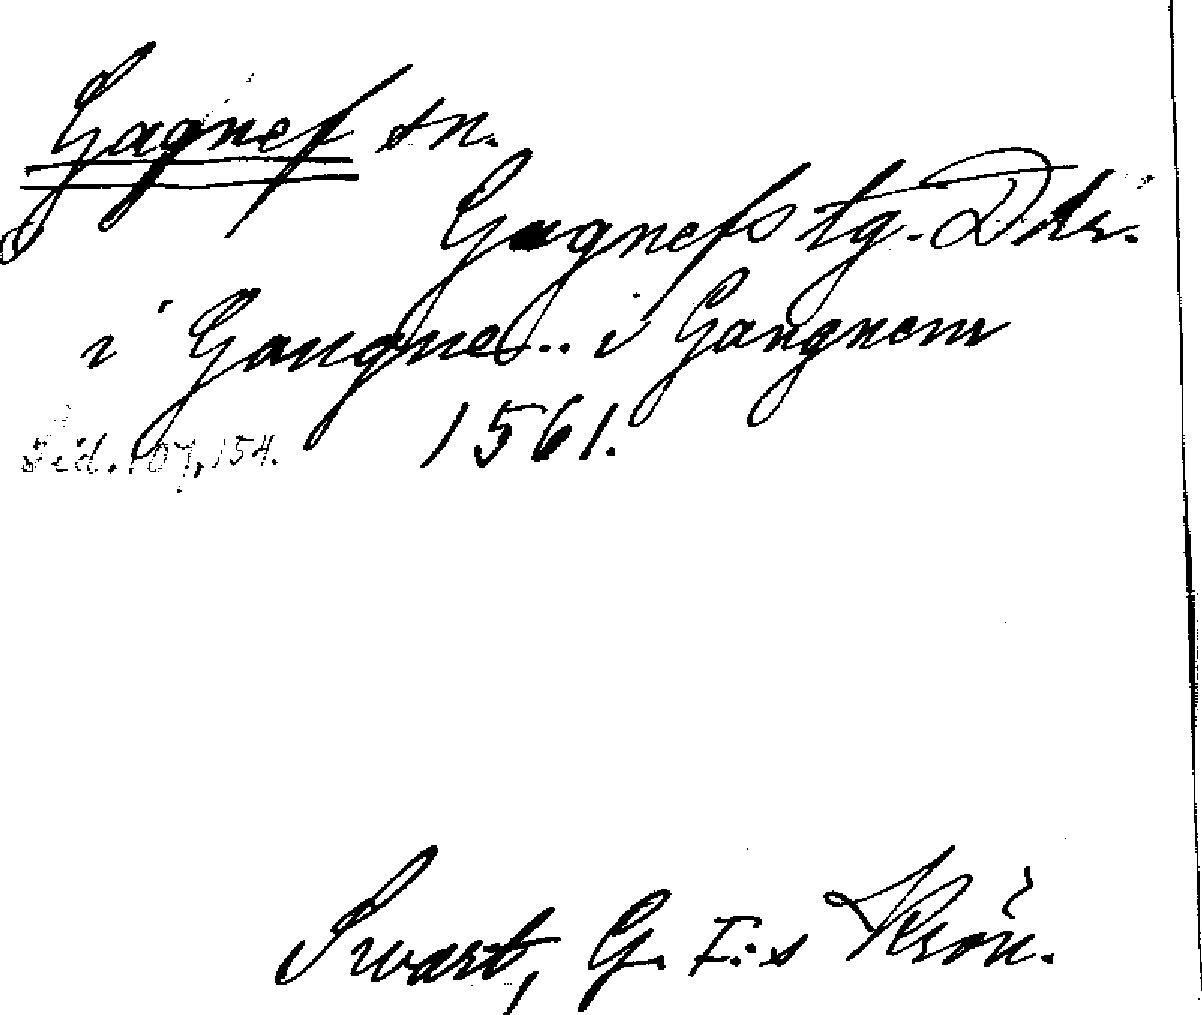 Gagnef sn.
Gagnefs tg. Dlr.
i Gangnes.. i Gangnem
1561.
Sid. 107, 154.
Swart, G. I:s Krön.